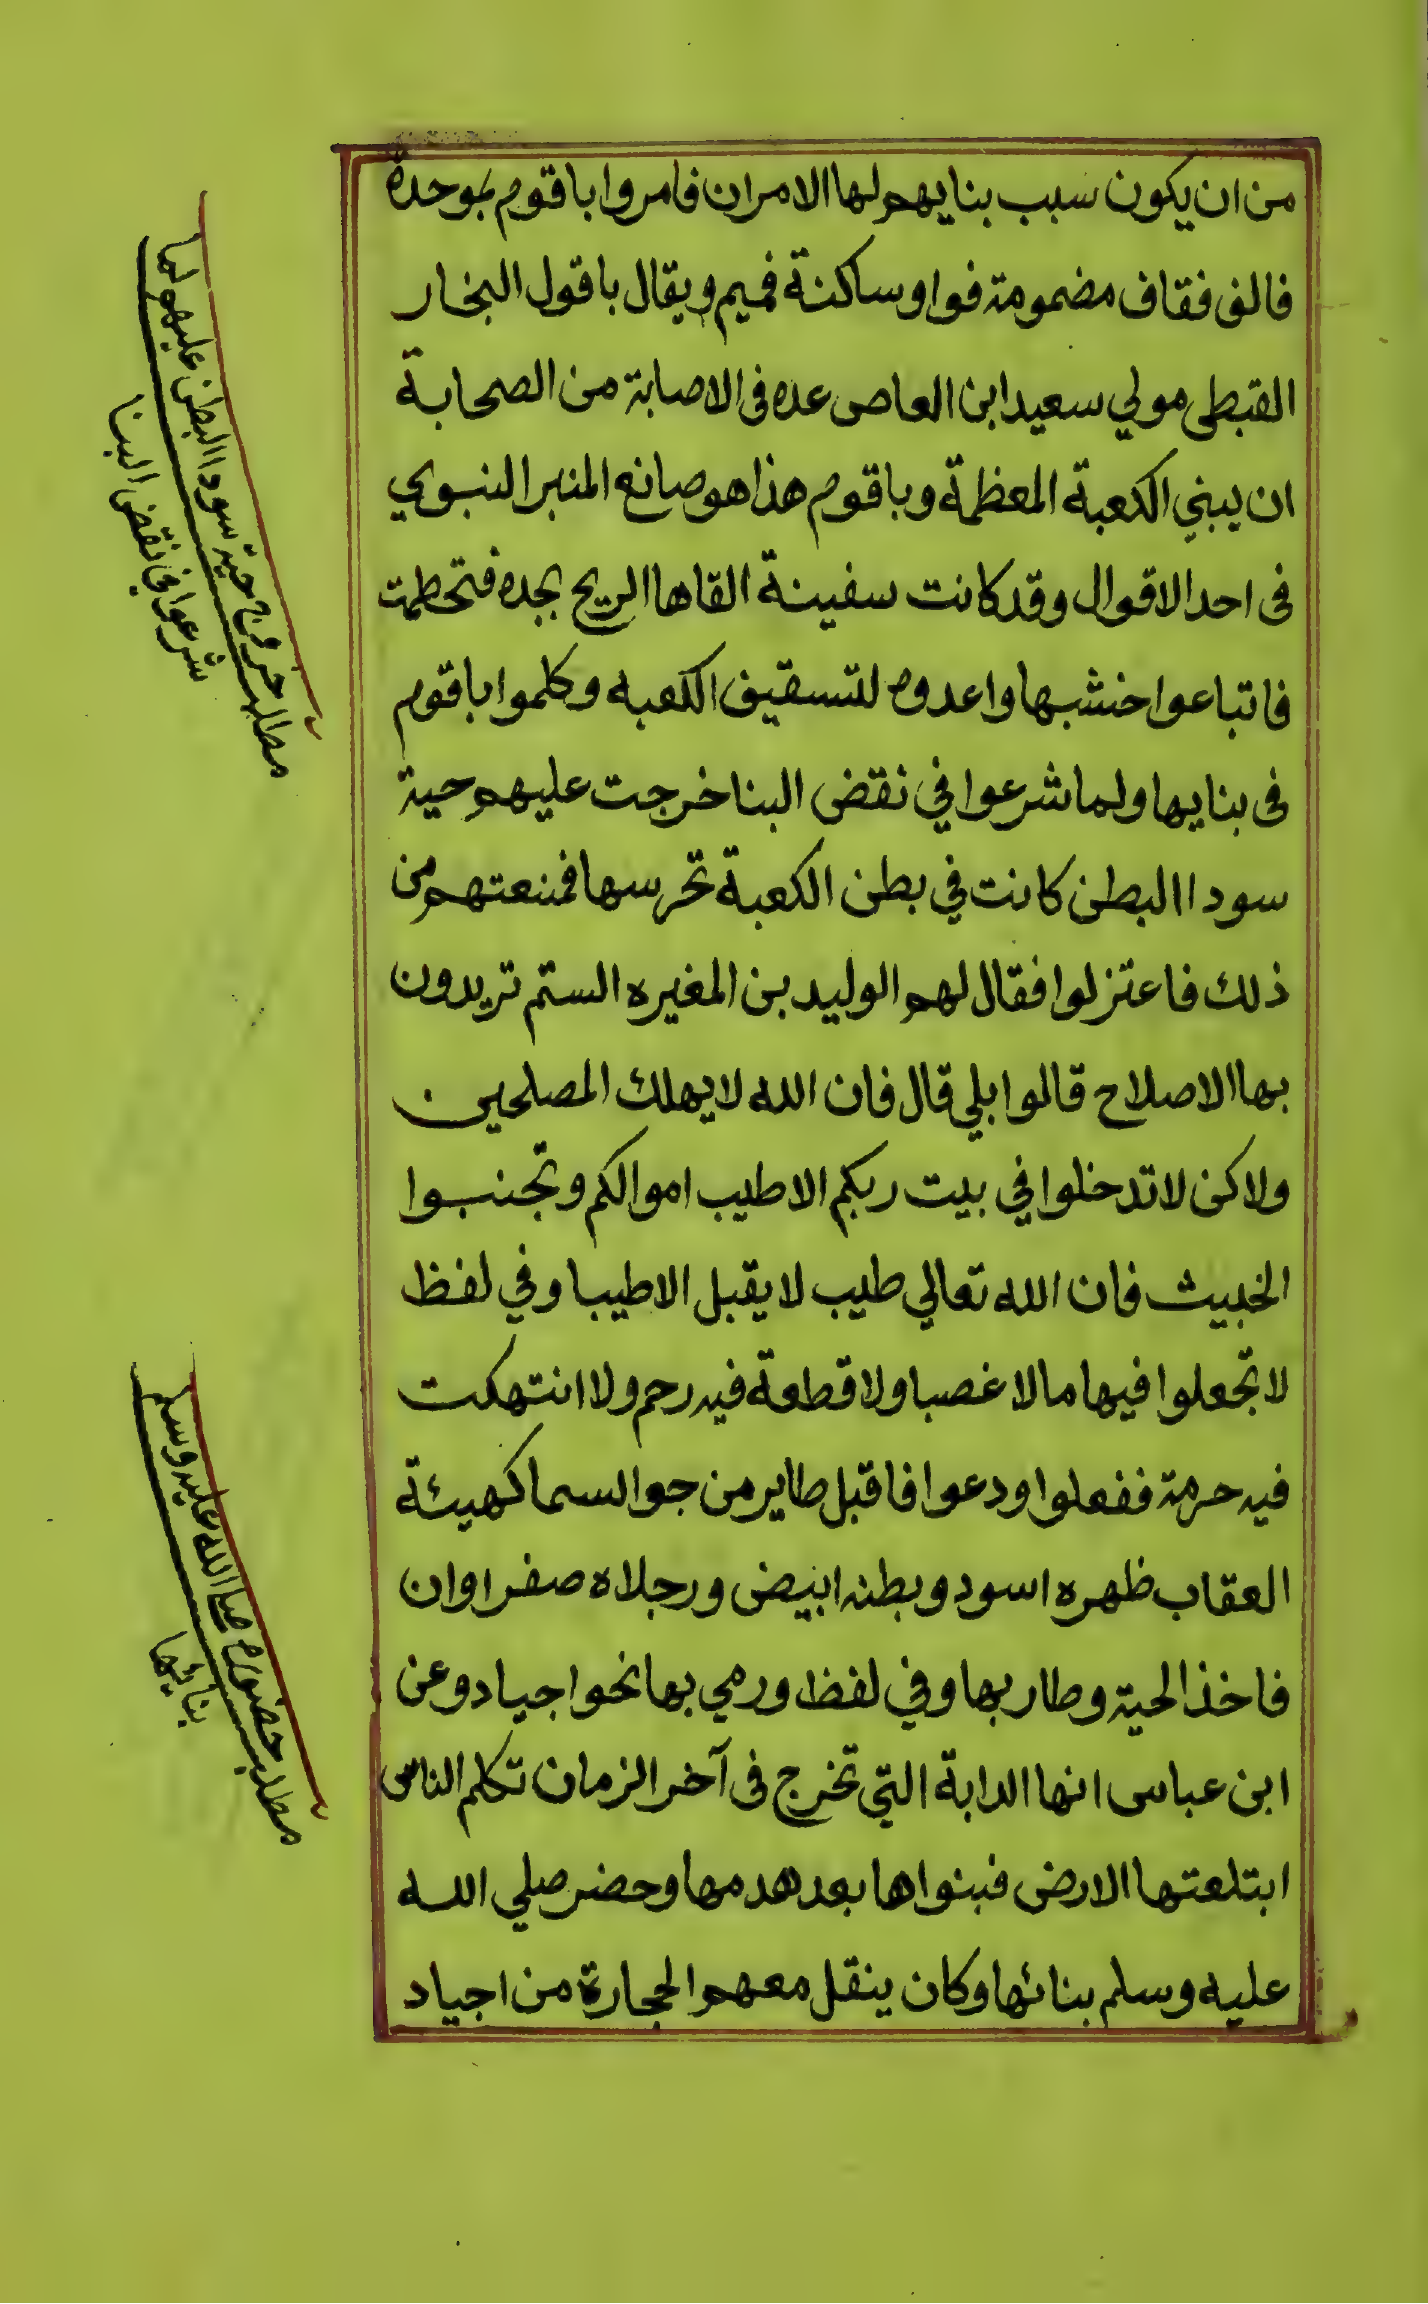 من ان يكون سبب بنايهم لها الامران فامروا باقوم بموحدة
فالف فقاف مضمومة فواو ساكنة فميم ويقال باقول النجار
القبطي مولي سعيد ابن العاص عده في الاصابة من الصحابة
ان يبني الكعبة المعظمة وباقوم هذا هو صانع المنبر النبوي
في احد الاقوال وقد كانت سفينة القاها الريح بجده فتحطمت
فابتاعوا خشبها واعدوه لتسقيف الكعبه وكلموا باقوم
في بنايها ولما شرعوا في نقض البنا خرجت عليهم حية
سودا البطن كانت في بطن الكعبة تحرسها فمنعتهم من
ذلك فاعتزلوا فقال لهم الوليد بن المغيره الستم تريدون
بها الاصلاح قالوا بلي قال فان الله لا يهلك المصلحين
ولاكن لا تدخلوا في بيت ربكم الا طيب اموالكم وتجنبوا
الخبيث فان الله تعالي طيب لا يقبل الا طيبا وفي لفظ
لا تجعلوا فيها مالا غصبا ولا قطعة فيه رحم ولا انتهكت
فيه حرمة ففعلوا ودعوا فاقبل طاير من جو السما كهيئة
العقاب ظهره اسود وبطنه ابيض ورجلاه صفراوان
فاخذ الحية وطار بها وفي لفظ ورمي بها نحو اجياد وعن
ابن عباس انها الدابة التي تخرج في آخر الزمان تكلم الناس
ابتلعتها الارض فبنواها بعد هدمها وحضر صلي الله
عليه وسلم بنائها وكان ينقل معهم الحجارة من اجياد
مطلب خروج حية سودا البطن عليهم لما
شرعوا في نقض البنا
مطلب حضوره صلي الله عليه وسلم
بنائها